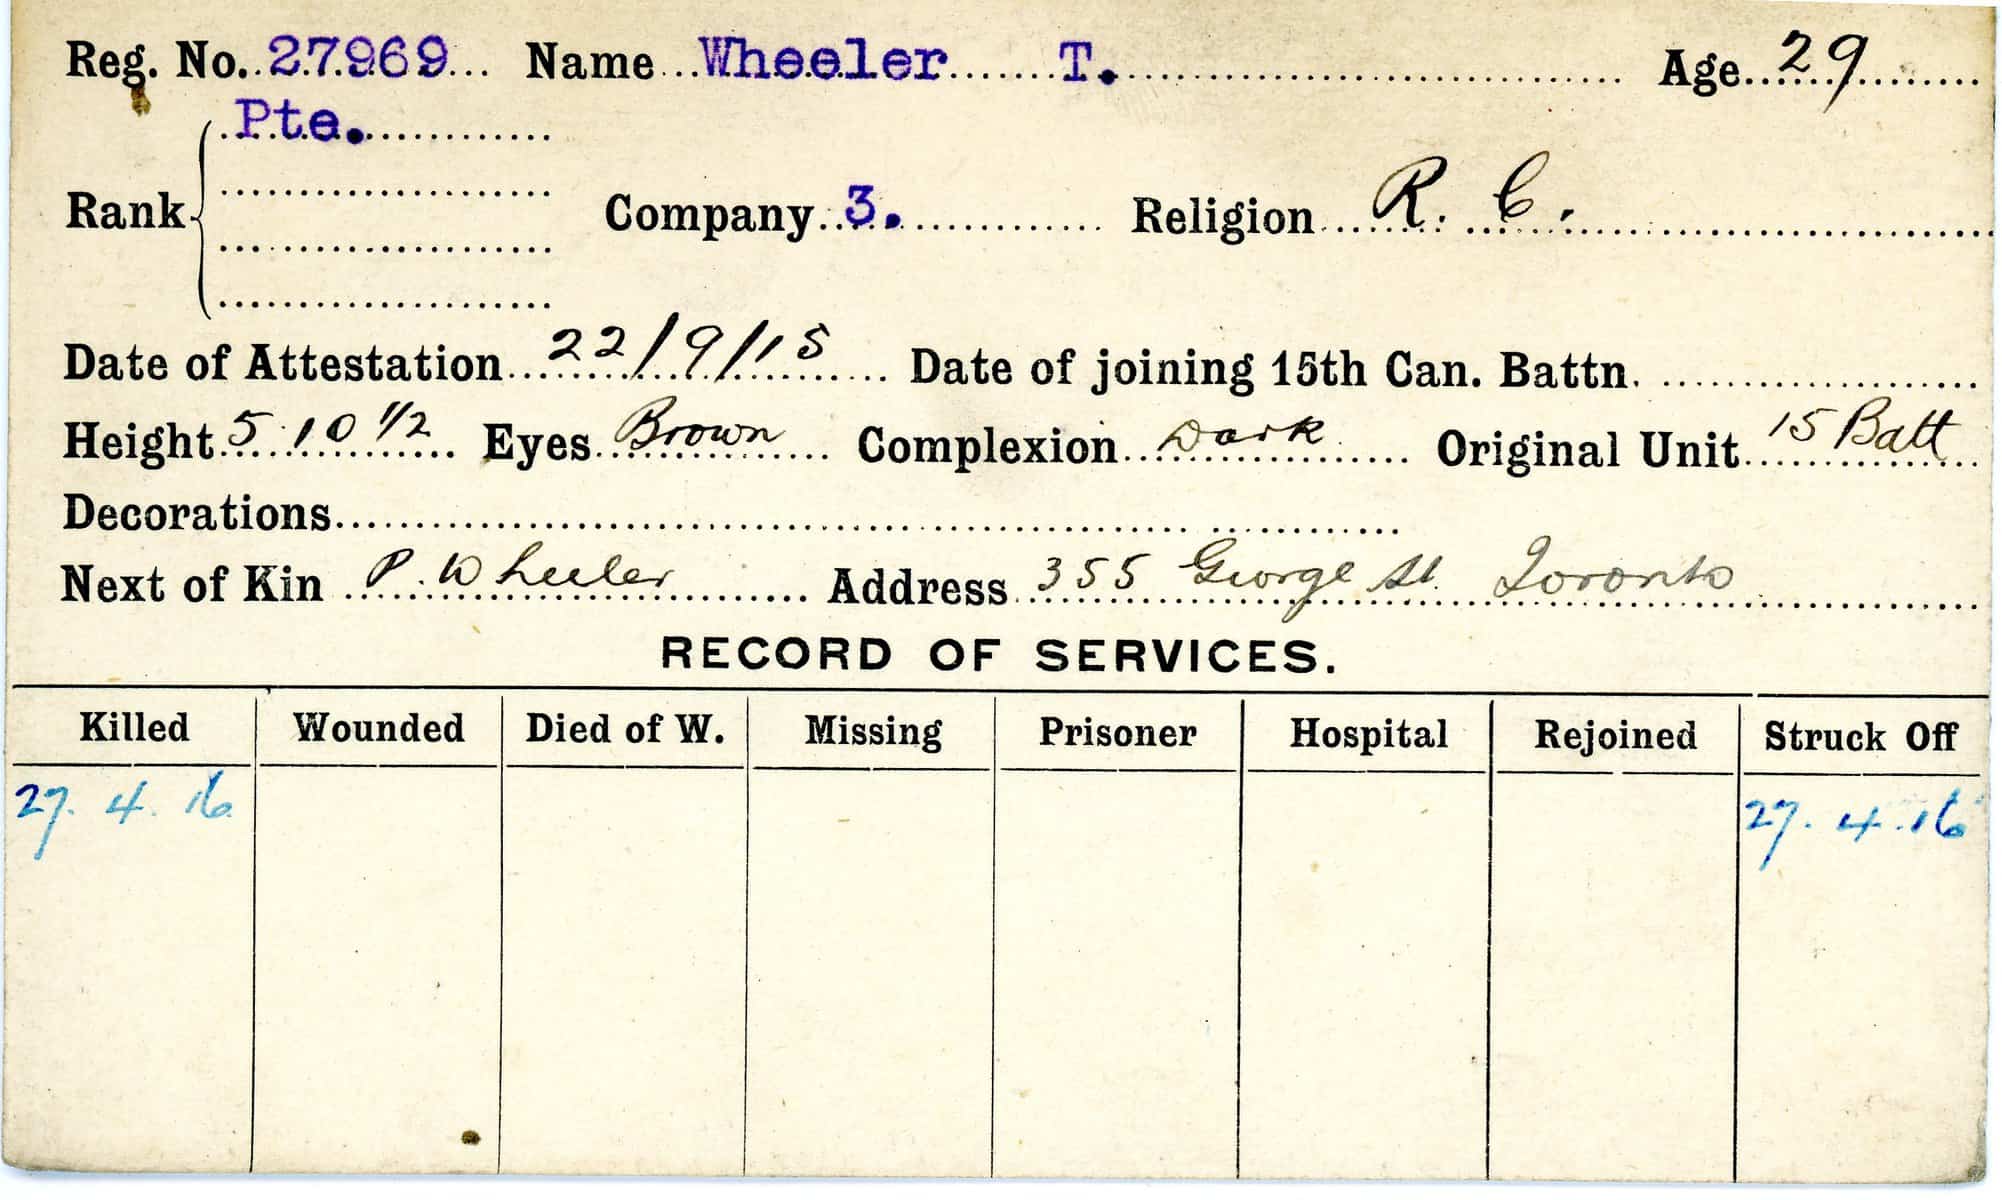 Reg. No. 27969 Name Wheeler T. Age 29
Pte.
Rank Company 3. Religion R. C.
Date of Attestation 22/9/15 Date of joining 15th Can. Battn.
Height 5 10 1/2 Eyes Brown Complexion Dark Original Unit 15 Batt
Decorations
Next of Kin P. Wheeler Address 355 George St. Toronto
RECORD OF SERVICES.
Killed Wounded Died of W. Missing Prisoner Hospital Rejoined Struck Off
27. 4. 16 27. 4. 16